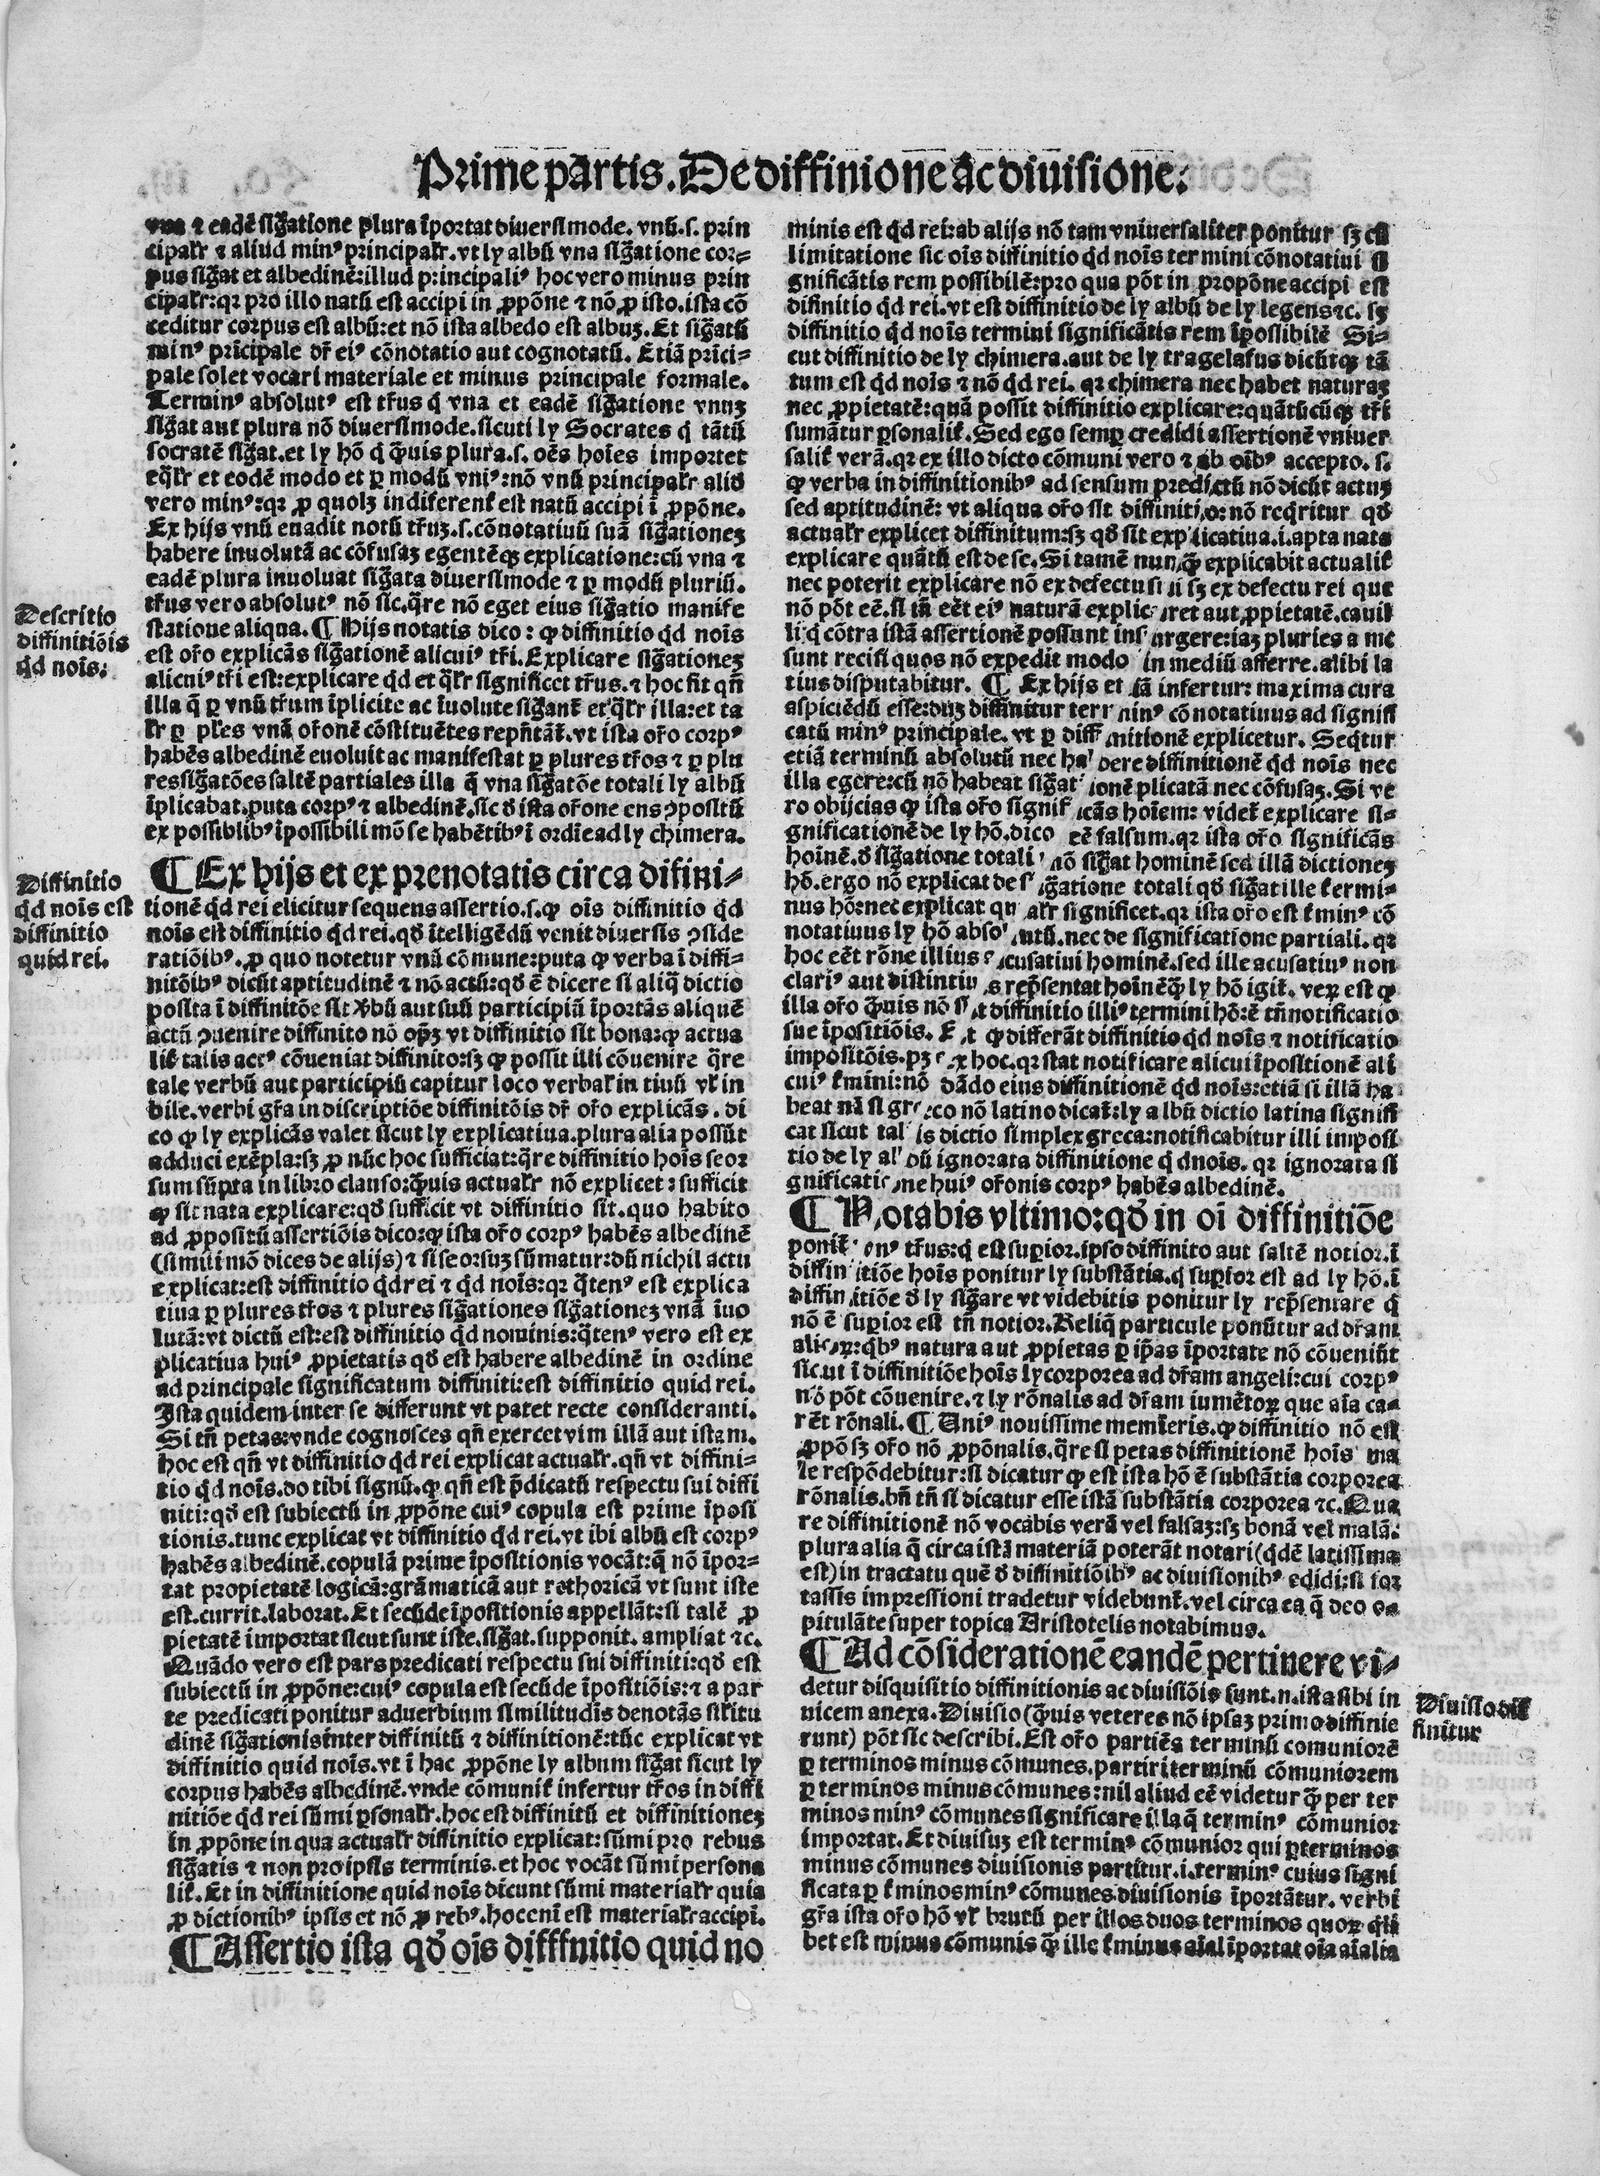 Prime partis. De diffinione ac diuisione.
vna ⁊ eadē sig̃atione plura īportat diuersimode. vnū. s. prin
cipalr̄ ⁊ aliud minꝰ principalr̄. vt ly albū vna sig̃atione cor-
pus sig̃at et albedinē: illud principaliꝰ hoc vero minus prin
cipalr̄: qr pro illo natū est accipi in ꝓpōne ⁊ nō ꝓ isto. ista cō
ceditur corpus est albū: et nō ista albedo est albuꝫ. Et sig̃atū
minꝰ prīcipale dr̄ eiꝰ cōnotatio aut cognotatū. Etiā prīci-
pale solet vocari materiale et minus principale formale.
Terminꝰ absolutꝰ est tr̄us q̇ vna et eadē sig̃atione vnuꝫ
sig̃at aut plura nō diuersimode. sicuti ly Socrates q̇ tātū
socratē sig̃at. et ly hō q̇ q̄uis plura. s. oēs hoīes importet
eq̄lr̄ et eodē modo et ꝑ modū vniꝰ: nō vnū principalr̄ aliđ
vero minꝰ: qr ꝓ quolꝫ indiferent̄ est natū accipi ī ꝓpōne.
Ex hijs vnū euadit notū tr̄uꝫ. s. cōnotatiuū suā sig̃ationeꝫ
habere inuolutā ac cōfusaꝫ egentēqꝫ explicatione: cū vna ⁊
eadē plura inuoluat sig̃ata diuersimode ⁊ ꝑ modū pluriū.
tr̄us vero absolutꝰ nō sic. q̄re nō eget eius sig̃atio manife
statione aliqua. ¶ Hijs notatis dico: ꝙ diffinitio qd noīs
est or̄o explicās sig̃ationē alicuiꝰ tr̄i. Explicare sig̃ationeꝫ
alicuiꝰ tr̄i est: explicare qd et q̄lr̄ significet tr̄us. ⁊ hoc fit qn̄
illa q̄ ꝑ vnū tr̄um īplicite ac īuolute sig̃ant̄ et q̄lr̄ illa: et ta
lr̄ ꝑ plr̄es vnā or̄onē cōstituētes repn̄tāt̄. vt ista or̄o corpꝰ
habēs albedinē euoluit ac manifestat ꝑ plures tr̄os ⁊ ꝑ plu
res sig̃atōes saltē partiales illa q̄ vna sig̃atōe totali ly albū
īplicabat. puta corpꝰ ⁊ albedinē. sic đ ista or̄one ens ꝯpositū
ex possiblibꝰ īpossibili mō se habētibꝰ ī ordīe ad ly chimera.
¶ Ex hijs et ex prenotatis circa difini-
tionē qd rei elicitur sequens assertio. s. ꝙ oīs diffinitio qd
noīs est diffinitio qd rei. qđ ītelligēdū venit diuersis ꝯside
ratiōibꝰ. ꝓ quo notetur vnū cōmune: puta ꝙ verba ī diffi-
nitōibꝰ dicūt aptitudinē ⁊ nō actū: qđ ē dicere si aliq̄ dictio
posita ī diffinitōe sit v̄bū aut suū participiū īportās aliquē
actū ꝯuenire diffinito nō opꝫ vt diffinitio sit bona: ꝙ actua
lit̄ talis actꝰ cōueniat diffinito: sꝫ ꝙ possit illi cōuenire q̄re
tale verbū aut participiū capitur loco verbal̄ in tiuū vl̄ in
bile. verbi gr̄a in discriptiōe diffinitōis dr̄ or̄o explicās. di
co ꝙ ly explicās valet sicut ly explicatiua. plura alia possūt
adduci exēpla: sꝫ ꝓ nūc hoc sufficiat: q̄re diffinitio hoīs seor
sum sūpta in libro clauso: q̄uis actualr̄ nō explicet: sufficit
ꝙ sit nata explicare: qđ sufficit vt diffinitio sit. quo habito
ad ꝓpositū assertiōis dico: ꝙ ista or̄o corpꝰ habēs albedinē
(simili mō dices de alijs) ⁊ si seorsuꝫ sūmatur: dū nichil actu
explicat: est diffinitio qd rei ⁊ qd noīs: qr q̄tenꝰ est explica
tiua ꝑ plures tr̄os ⁊ plures sig̃ationes sig̃ationeꝫ vnā īuo
lutā: vt dictū est: est diffinitio qd nominis: q̄tenꝰ vero est ex
plicatiua huiꝰ ꝓpietatis qđ est habere albedinē in ordine
ad principale significatum diffiniti: est diffinitio quid rei.
Ista quidem inter se differunt vt patet recte consideranti.
Si tn̄ petas: vnde cognosces qn̄ exercet vim illā aut istam.
hoc est qn̄ vt diffinitio qd rei explicat actualr̄. qn̄ vt diffini-
tio qd noīs. do tibi signū. ꝙ qn̄ est p̄dicatū respectu sui diffi
niti: qđ est subiectū in ꝓpōne cuiꝰ copula est prime īposi
tionis. tunc explicat vt diffinitio qd rei. vt ibi albū est corpꝰ
habēs albedinē. copulā prime īpositionis vocāt: q̄ nō īpor-
tat propietatē logicā: grāmaticā aut rethoricā vt sunt iste
est. currit. laborat. Et secūde īpositionis appellāt: si talē ꝓ
pietatē importat sicut sunt iste. sig̃at. supponit. ampliat ⁊c.
Quādo vero est pars predicati respectu sui diffiniti: qđ est
subiectū in ꝓpōne: cuiꝰ copula est secūde īpositiōis: ⁊ a par
te predicati ponitur aduerbium similitudīs denotās silitu
dinē sig̃ationis inter diffinitū ⁊ diffinitionē: tūc explicat vt
diffinitio quid noīs. vt ī hac ꝓpōne ly album sig̃at sicut ly
corpus habēs albedinē. vnde cōmunit̄ infertur tr̄os in diffi
nitiōe qd rei sūmi ꝑsonalr̄. hoc est diffinitū et diffinitioneꝫ
in ꝓpōne in qua actualr̄ diffinitio explicat: sūmi pro rebus
sig̃atis ⁊ non pro ipsis terminis. et hoc vocāt sūmi persona
lit̄. Et in diffinitione quid noīs dicunt sūmi materialr̄ quia
ꝓ dictionibꝰ ipsis et nō ꝓ rebꝰ. hoc enī est materialr̄ accipi.
¶ Assertio ista qđ oīs difffnitio quid no
Descritio
diffinitiōis
qd nois.
Diffinitio
qd noīs est
diffinitio
quid rei.
minis est qd rei: ab alijs nō tam vniuersaliter ponitur sꝫ cū
limitatione sic oīs diffinitio qd noīs termini cōnotatiui si
gnificātis rem possibilē: pro qua pōt in propōne accipi est
difinitio qd rei. vt est diffinitio de ly albū de ly legens ⁊c. sꝫ
diffinitio qd noīs termini significātis rem īpossibilē Si-
cut diffinitio de ly chimera. aut de ly tragelafus dicūtqꝫ tā
tum est qd noīs ⁊ nō qd rei. qr chimera nec habet naturaꝫ
nec ꝓpietatē: quā possit diffinitio explicare: quātūcūqꝫ tr̄i
sumātur ꝑsonalit̄. Sed ego semꝑ credidi assertionē vniuer
salit̄ verā. qr ex illo dicto cōmuni vero ⁊ ab oībꝰ accepto. s.
ꝙ verba in diffinitionibꝰ ad sensum predictū nō dicūt actuꝫ
sed aptitudinē: vt aliqua or̄o sit diffinitio: nō reqritur qđ
actualr̄ explicet diffinitum: sꝫ qđ sit explicatiua. i. apta nata
explicare quātū est de se. Si tamē nunq̄ explicabit actualit̄
nec poterit explicare nō ex defectu sui sꝫ ex defectu rei que
nō pōt eē. si tn̄ eēt eiꝰ naturā explicaret aut ꝓpietatē. cauil
li q̇ cōtra istā assertionē possunt insurgere: iaꝫ pluries a me
sunt recisi quos nō expedit modo in mediū afferre. alibi la
tius disputabitur. ¶ Ex hijs etiā infertur: maxima cura
aspiciēdū esse: duꝫ diffinitur terminꝰ cōnotatiuus ad signifi
catū minꝰ principale. vt ꝑ diffinitionē explicetur. Seqtur
etiā terminū absolutū nec habere diffinitionē qd noīs nec
illa egere: cū nō habeat sig̃ationē plicatā nec cōfusaꝫ. Si ve
ro obijcias ꝙ ista or̄o significās hoīem: videt̄ explicare si-
gnificationē de ly hō. dico eē falsum. qr ista or̄o significās
hoīnē. đ sig̃atione totali nō sig̃at hominē sed illā dictioneꝫ
hō. ergo nō explicat de sig̃atione totali qđ sig̃at ille termi-
nus hō: nec explicat qualr̄ significet. qr ista or̄o est t̄minꝰ cō
notatiuus ly hō absolutū. nec de significatione partiali. qr
hoc eēt rōne illius acusatiui hominē. sed ille acusatiuꝰ non
clariꝰ aut distinctius repn̄sentat hoīnē q̄ ly hō igit̄. veꝝ est ꝙ
illa or̄o q̄uis nō sit diffinitio illiꝰ termini hō: ē tn̄ notificatio
sue īpositiōis. Et ꝙ differāt diffinitio qd noīs ⁊ notificatio
impositōis. pꝫ ex hoc. qr stat notificare alicui īpositionē ali
cuiꝰ t̄mini: nō dādo eius diffinitionē qd noīs: etiā si illā ha
beat nā si greco nō latino dicat̄: ly albū dictio latina signifi
cat sicut talis dictio simplex greca: notificabitur illi imposi
tio de ly albū ignorata diffinitione q̇ dnoīs. qr ignorata si
gnificatione huiꝰ or̄onis corpꝰ habēs albedinē.
¶ Notabis vltimo: qđ in oī diffinitiōe
ponit̄ vnꝰ tr̄us: q̇ est suꝑior. ipso diffinito aut saltē notior. ī
diffinitiōe hoīs ponitur ly substātia. q̇ suꝑior est ad ly hō. ī
diffinitiōe đ ly sig̃are vt videbitis ponitur ly repn̄sentare q̇
nō ē suꝑior est tn̄ notior. Reliq̄ particule ponūtur ad dr̄am
alioꝝ: qbꝰ natura aut ꝓpietas ꝑ ip̄as īportate nō cōueniūt
sicut ī diffinitiōe hoīs ly corporea ad dr̄am angeli: cui corpꝰ
nō pōt cōuenire. ⁊ ly rōnalis ad dr̄am iumētoꝝ que aīa ca-
rēt rōnali. ¶ Uniꝰ nouissime memīeris. ꝙ diffinitio nō est
ꝓpō sꝫ or̄o nō ꝓpōnalis. q̄re si petas diffinitionē hoīs ma
le respōdebitur: si dicatur ꝙ est ista hō ē substātia corporea
rōnalis. bn̄ tn̄ si dicatur esse istā substātia corporea ⁊c. Qua
re diffinitionē nō vocabis verā vel falsaꝫ: sꝫ bonā vel malā.
plura alia q̄ circa istā materiā poterāt notari (qdē latissima
est) in tractatu quē đ diffinitiōibꝰ ac diuisionibꝰ edidi: si for
tassis impressioni tradetur videbunt̄. vel circa ea q̄ deo ca
pitulāte super topica Aristotelis notabimus.
¶ Ad cōsiderationē eandē pertinere vi-
detur disquisitio diffinitionis ac diuisiōis sunt. n. ista sibi in
uicem anexa. Diuisio (q̄uis veteres nō ipsaꝫ primo diffinie
runt) pōt sic describi. Est or̄o partiēs terminū comuniorē
ꝑ terminos minus cōmunes. partiri terminū cōmuniorem
ꝑ terminos minus cōmunes: nil aliud eē videtur q̄ per ter
minos minꝰ cōmunes significare illa q̄ terminꝰ cōmunior
importat. Et diuisuꝫ est terminꝰ cōmunior qui ꝑ terminos
minus cōmunes diuisionis partitur. i. terminꝰ cuius signi
ficata ꝑ t̄minos minꝰ cōmunes diuisionis īportātur. verbi
gr̄a ista or̄o hō vl̄ brutū per illos duos terminos quoꝝ qli
bet est minus cōmunis q̄ ille t̄minus aīal īportat oīa aīalia
Diuisio dif
finitur